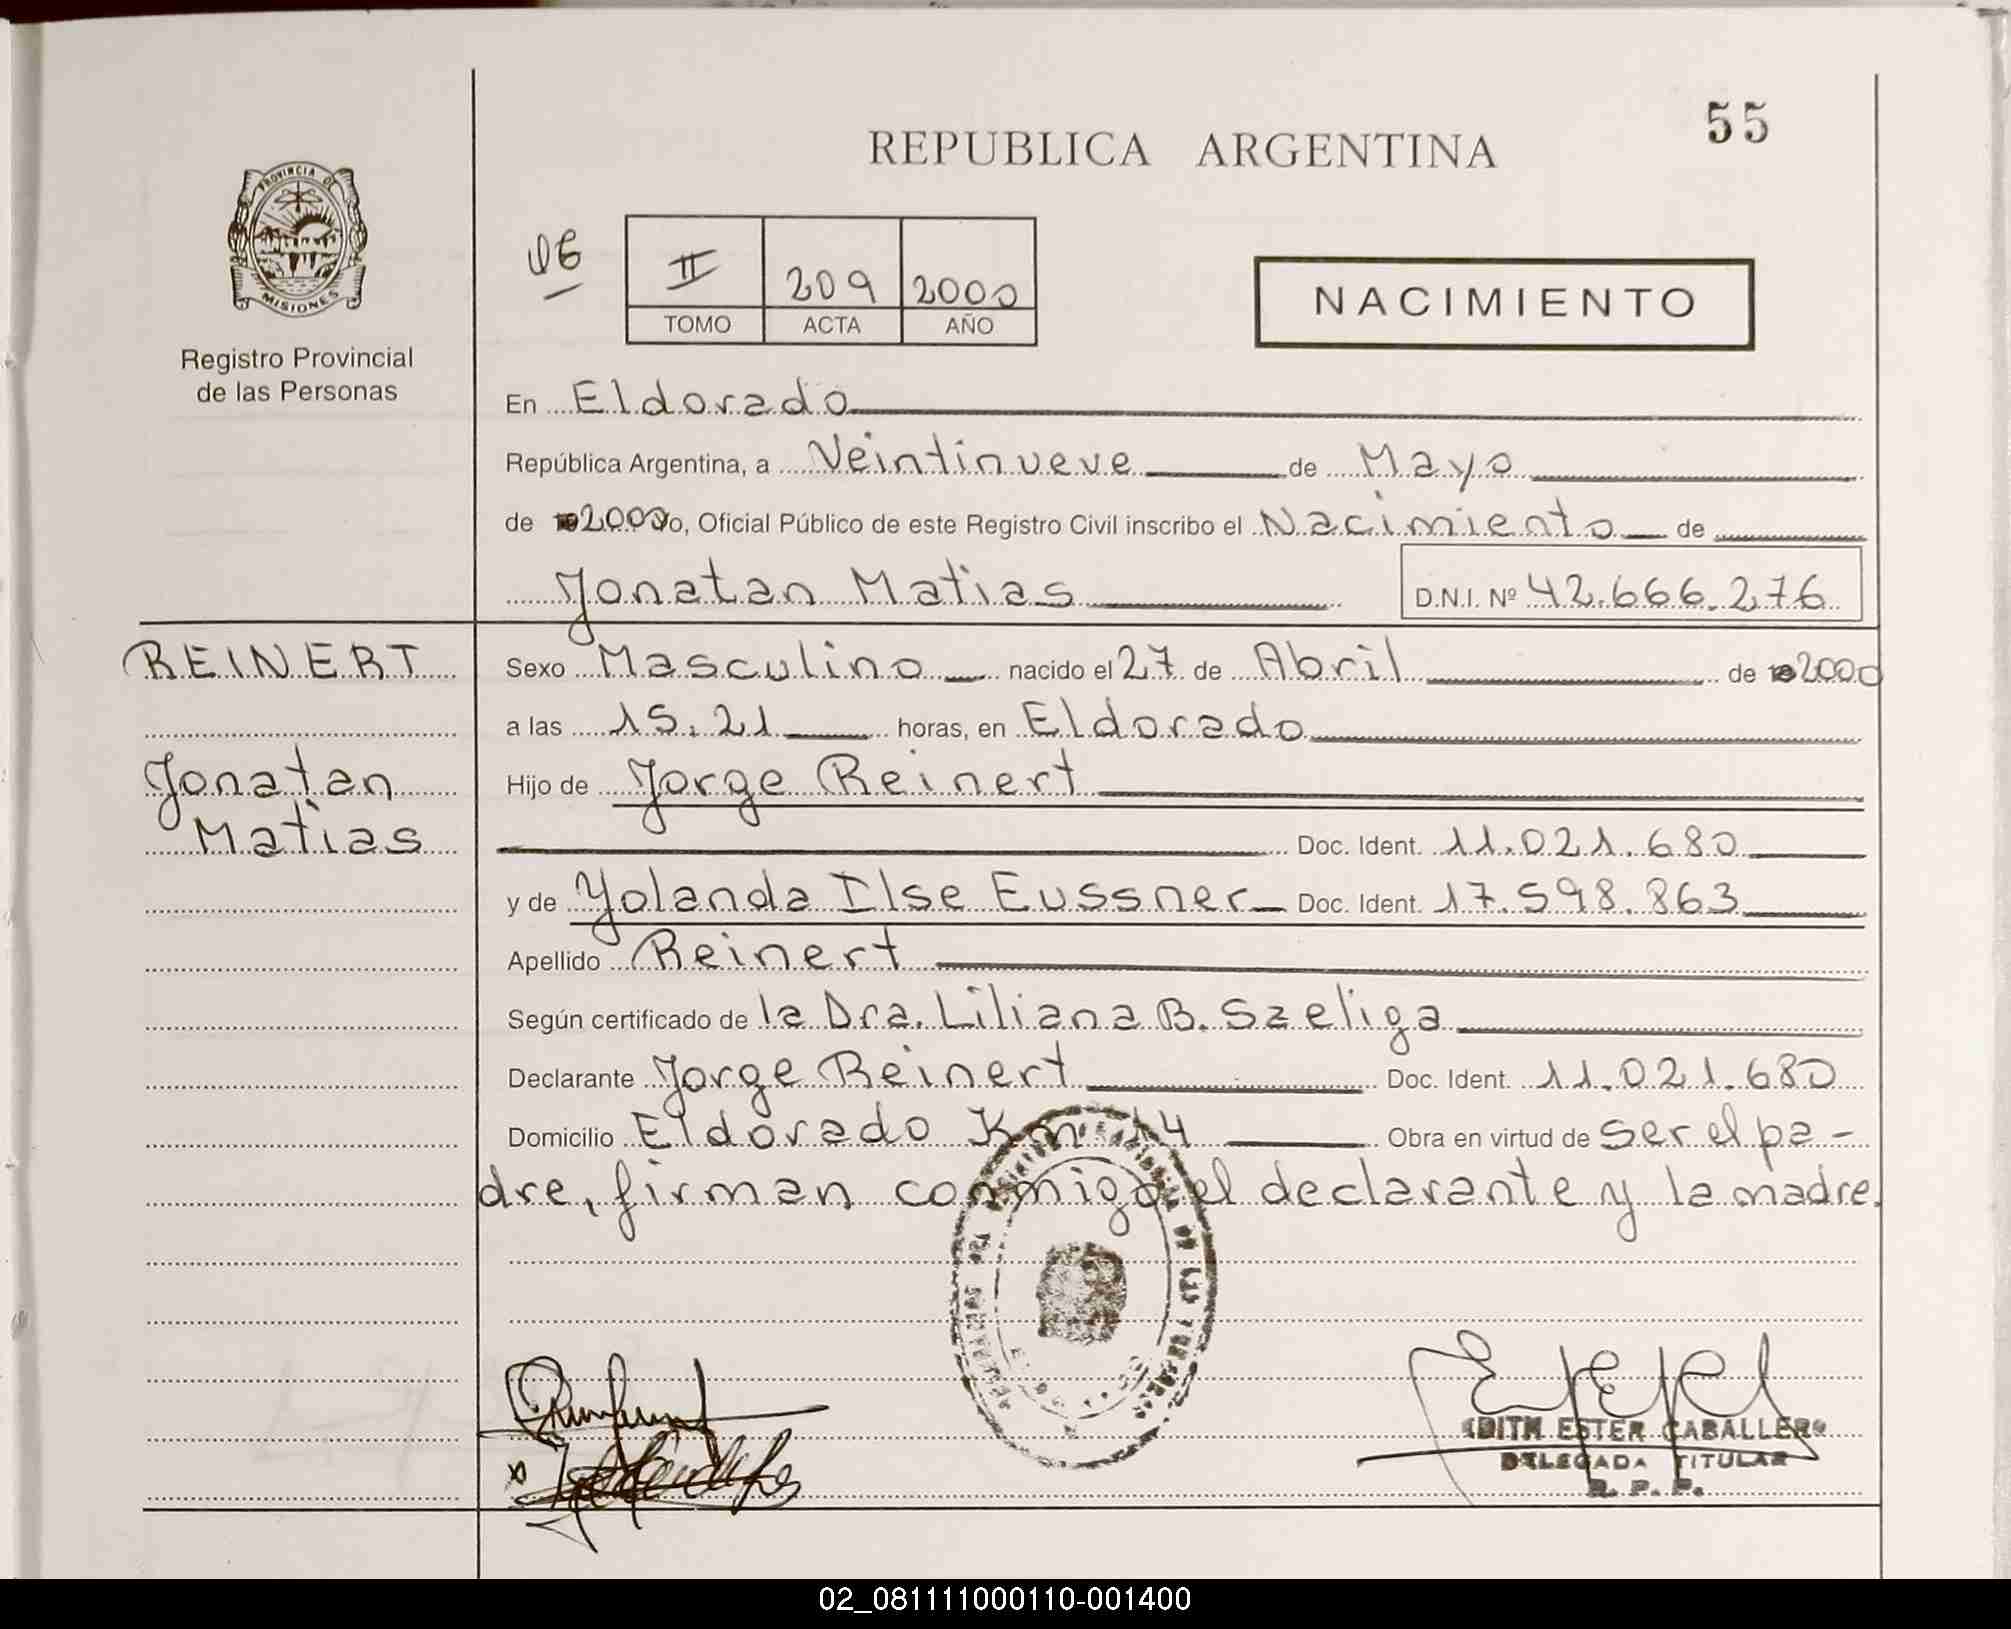 55
REPUBLICA ARGENTINA
PROVINCIA DE
MISIONES
Registro Provincial
de las Personas
II 209 2000
TOMO ACTA AÑO
NACIMIENTO
En Eldorado
República Argentina, a Veintinueve de Mayo
de 2000 yo, Oficial Público de este Registro Civil inscribo el Nacimiento de
Jonatan Matias D.N.I. Nº 42.666.276
REINERT
Jonatan
Matias
Sexo Masculino nacido el 27 de Abril de 2000
a las 15.21 horas, en Eldorado
Hijo de Jorge Reinert
Doc. Ident. 11.021.680
y de Yolanda Ilse Eussner Doc. Ident. 17.598.863
Apellido Reinert
Según certificado de la Dra. Liliana B. Szeliga
Declarante Jorge Reinert Doc. Ident. 11.021.680
Domicilio Eldorado Km 14 Obra en virtud de ser el pa-
dre, firman conmigo el declarante y la madre.
EDITH ESTER CABALLERO
DELEGADA TITULAR
R. P. P.
02_081111000110-001400